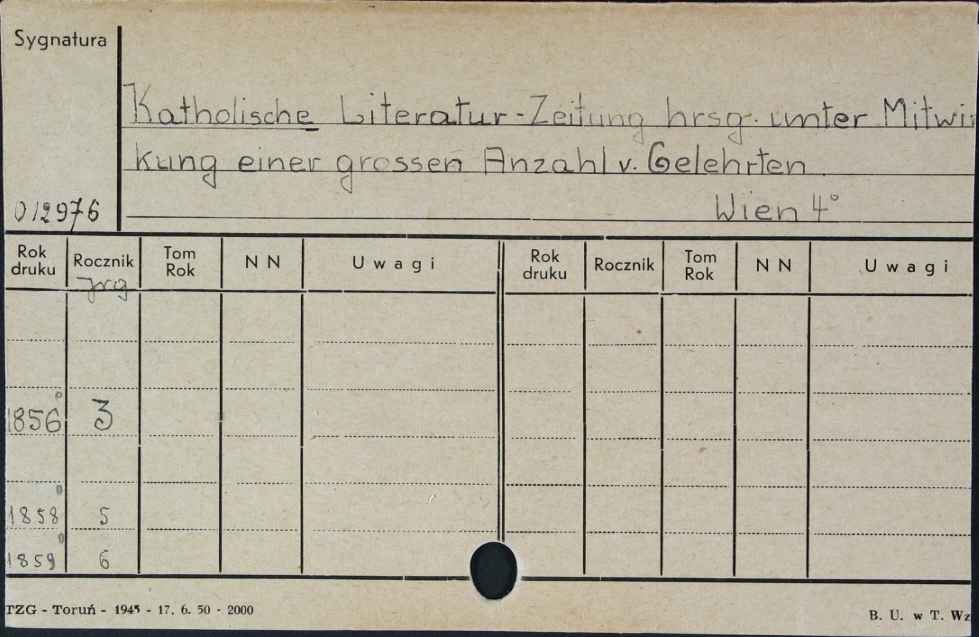 Sygnatura
Katholische Literatur-Zeitung hrsg. unter Mitwir
kung einer grossen Anzahl v. Gelehrten
Wien 4°
012976
Rok druku Rocznik Tom Rok N N Uwagi Rok druku Rocznik Tom Rok N N Uwagi
Jrg
1856 3
1858 5
1859 6
TZG - Toruń - 1945 - 17. 6. 50 - 2000 B. U. w T. Wz